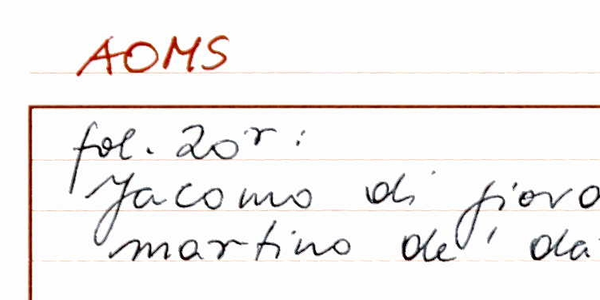 AOMS
fol. 20r:
Jacomo di giova
martino de' da